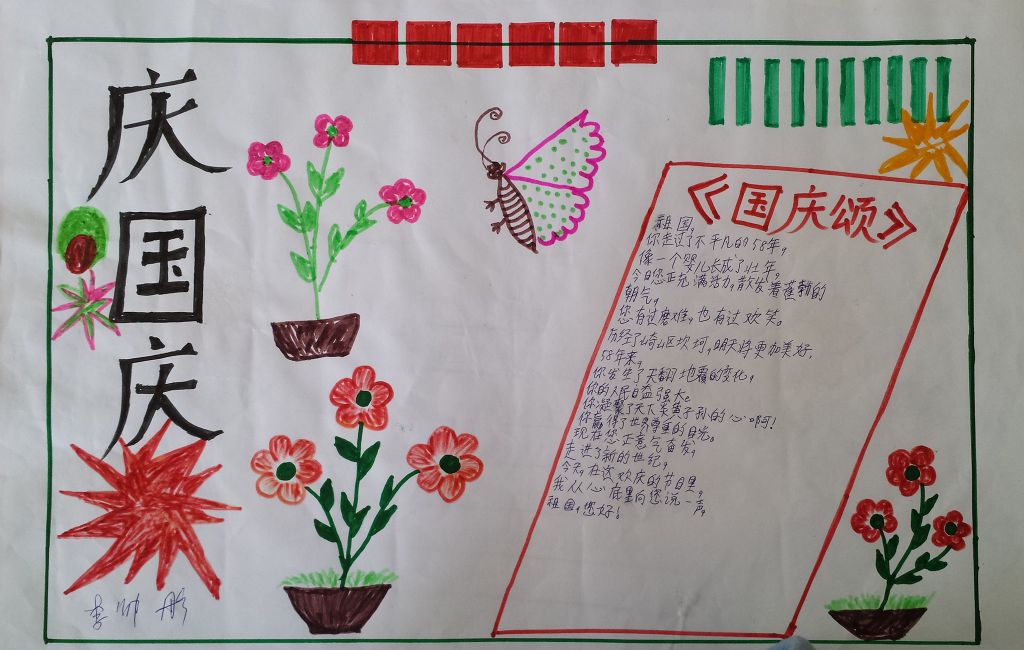 庆国庆
《国庆颂》
祖国，
你走过了不平凡的58年，
像一个婴儿长成了壮年，
今日您正充满活力，散发着蓬勃的
朝气，
您有过磨难，也有过欢笑。
历经了崎岖坎坷，明天将更加美好，
58年来，
你发生了天翻地覆的变化，
你的人民日益强大。
你凝聚了天下炎黄子孙的心啊！
你赢得了世界尊重的目光。
现在您正意气奋发，
走进了新的世纪，
今天，在这欢庆的节日里，
我从心底里向您说一声，
祖国，您好！
李帅彤